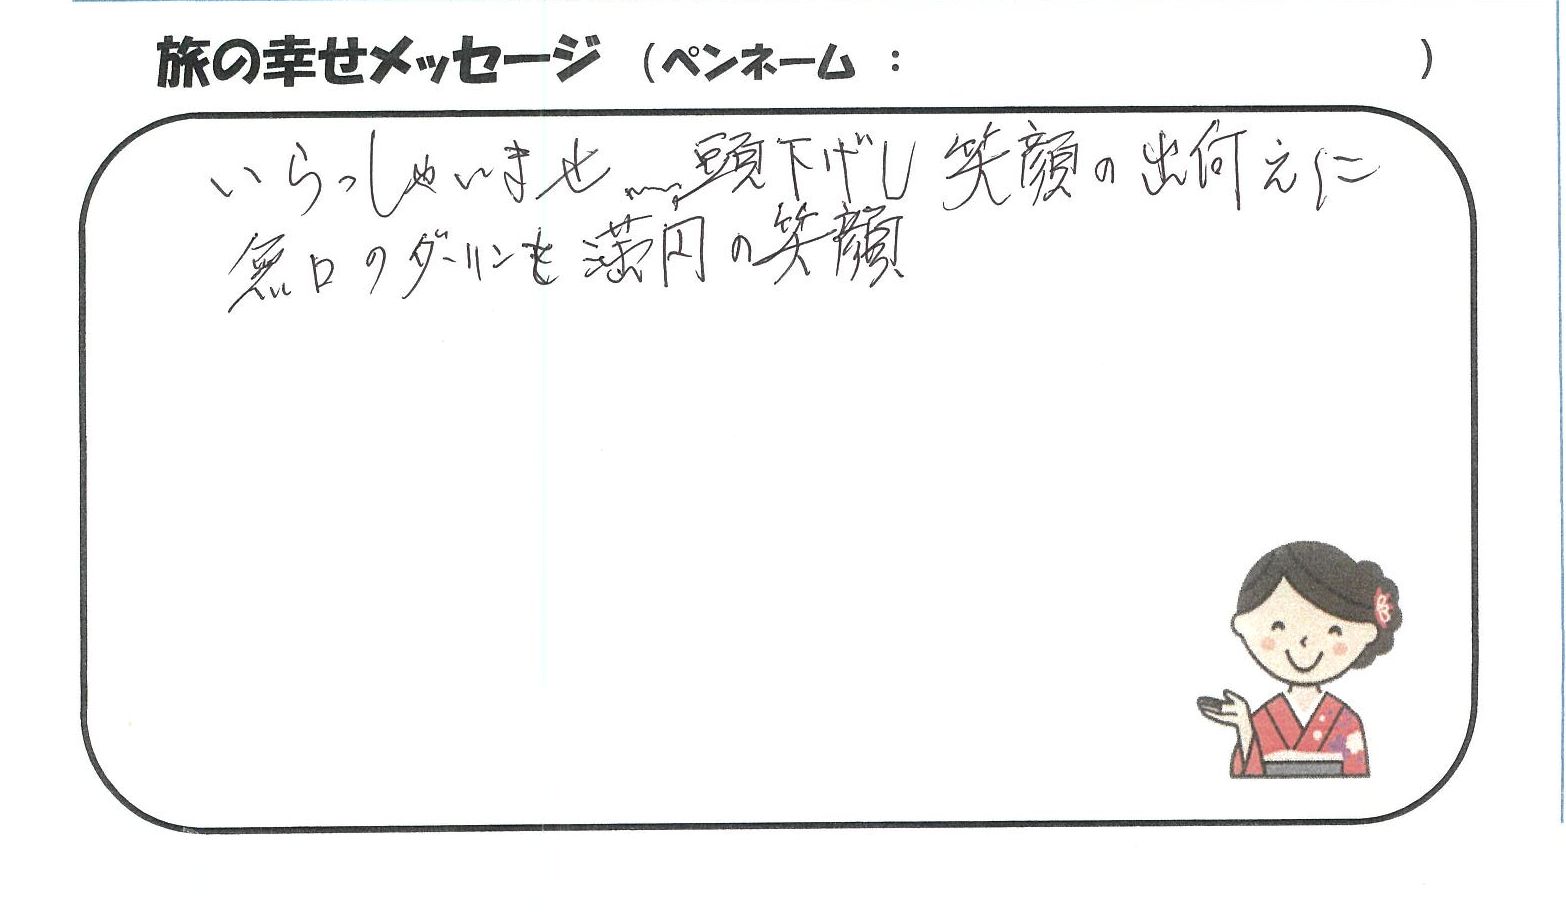 旅の幸せメッセージ (ペンネーム : )
いらっしゃいませ……頭下げし 笑顔の出何えに
無口のダーリンも満円の笑顔